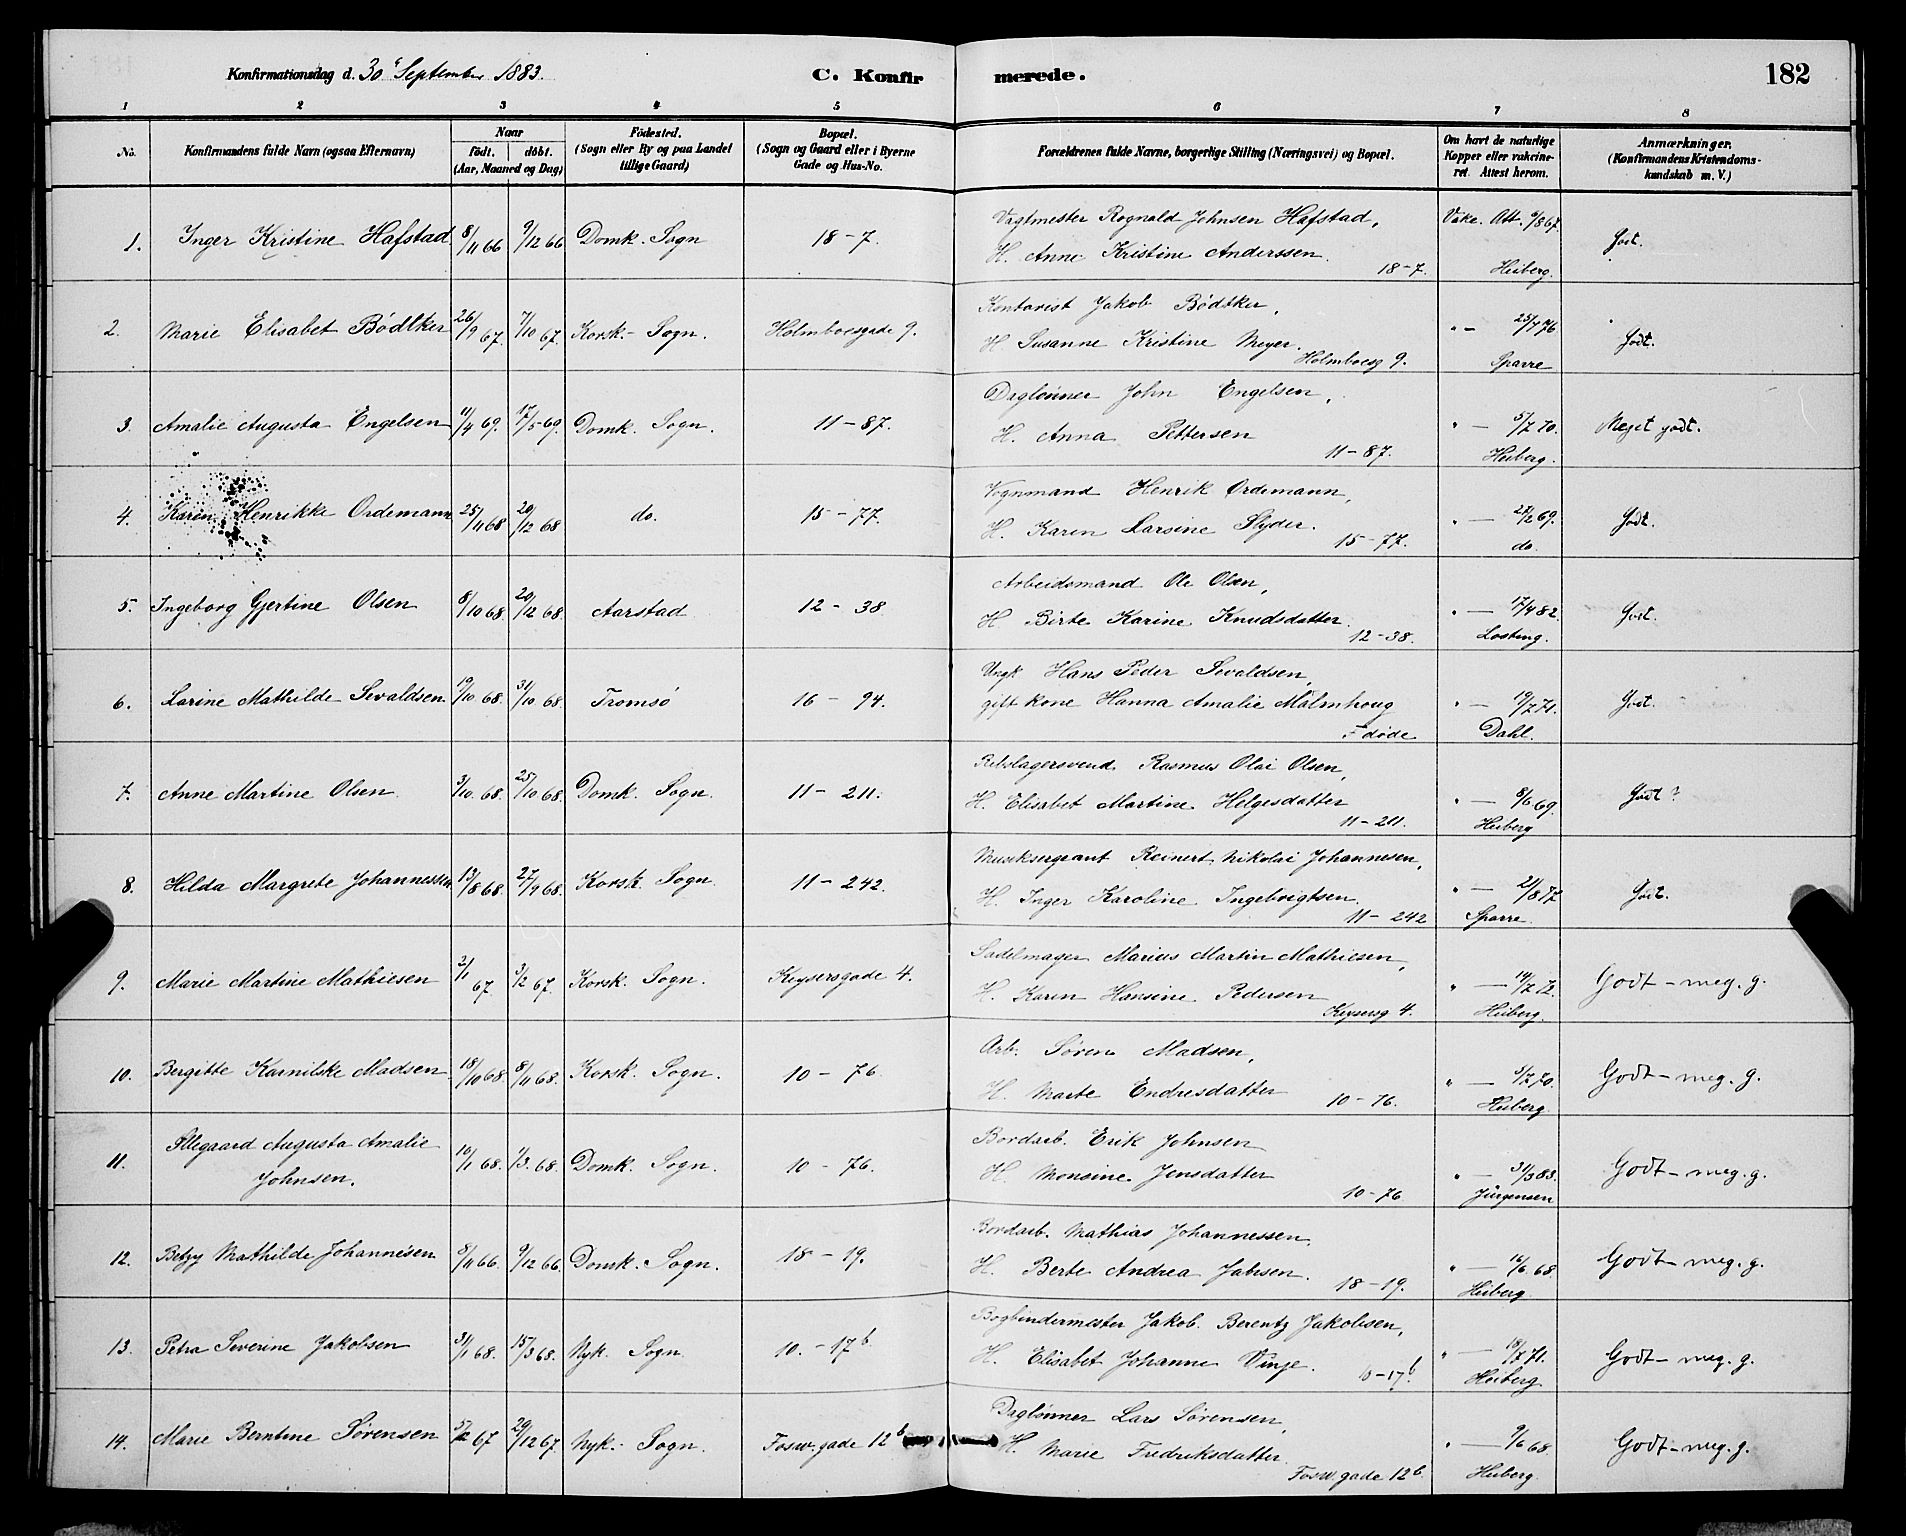 Konfirmationsdag d. 30' September 1883. C. Konfirmerede. 182
1 2 3 4 5 6 7 8
No. Konfirmandens fulde Navn (ogsaa Efternavn) Naar født. døbt. (Aar, Maaned og Dag) Fødested. (Sogn eller By og paa Landet tillige Gaard) Bopæl. (Sogn og Gaard eller i Byerne Gade og Hus-No. Forældrenes fulde Navne, borgerlige Stilling (Næringsvei) og Bopæl. Om havt de naturlige Kopper eller vakcineret. Attest herom. Anmærkninger. (Konfirmandens Kristendomskundskab m. V.)
1. Inger Kristine Hafstad 8/11 66 9/12 66 Domk. Sogn 18-7. Vagtmester Rognald Johnsen Hafstad, Vakc. Att. 9/8 67. Godt.
H. Anne Kristine Anderssen. 18-7. Heiberg.
2. Marie Elisabet Bødtker 26/9 67. 7/10 67. Korsk.- Sogn. Holmboesgade 9. Kontorist Jakob Bødtker, " - 25/7 76 Godt.
H. Susanne Kristine Meyer. Holmboesg 9. Sparre
3. Amalie Augusta Engelsen 11/4 69. 17/5 69. Domk. Sogn. 11-87. Daglønner John Engelsen, " - 5/7 70. Meget godt.
H. Anna Pettersen 11-87. Heiberg.
4. Karen Henrikke Ordemann 25/11 68 20/12 68 do. 15-77. Vognmand Henrik Ordemann, " - 22/2 69. Godt.
H. Karen Larsine Slyder. 15-77. do.
5. Ingeborg Gjertine Olsen 8/10 68. 20/12 68. Aarstad 12-38 Arbeidsmand Ole Olsen, " - 17/4 82. Godt.
H. Birte Karine Knudsdatter. 12-38. Losting.
6. Larine Mathilde Sevaldsen 19/10 68. 31/10 68. Tromsø 16-94. Ungk Hans Peder Sevaldsen, " - 19/7 71. Godt.
gift kone Hanna Amalie Malmhoug
døde Dahl.
7. Anne Martine Olsen 3/10. 68. 25/10 68. Domk. Sogn. 11-211. Rebslagersvend Rasmus Olai Olsen, " - 8/6 69. Godt?
H. Elisabet Martine Helgesdatter 11-211. Heiberg
8. Hilda Margrete Johannessen 13/8 68. 27/9 68. Korsk. Sogn 11-242. Musiksergeant Reinert Nikolai Johannesen, " - 21/8 72 Godt.
H. Inger Karoline Ingebrigtsen 11-242 Sparre.
9. Marie Martine Mathiesen 2/1 67. 3/2 67. Korsk. Sogn. Keysersgade 4. Sadelmager Marius Martin Mathiesen, " - 19/7 72. Godt-meg. g.
H. Karen Hansine Pedersen Keysersg 4. Heiberg.
10. Bergitte Karnilske Madsen 18/10 68. 8/11 68. Korsk. Sogn. 10-76 Arb. Søren Madsen, " - 5/7 70. Godt-meg. g.
H. Marte Endresdatter 10-76. Heiberg.
11. Illegaard Augusta Amalie Johnsen. 10/1 68. 1/3. 68. Domk. Sogn. 10-76. Bordarb. Erik Johnsen " - 31/3 83. Godt-meg. g.
H. Monsine Jensdatter 10-76 Jürgensen
12. Betzy Mathilde Johannesen 8/11 66. 9/12 66. Domk. Sogn. 18-19. Bordarb. Mathias Johannessen. " - 16/6. 68. Godt-meg. g.
H. Berte Andrea Jahsen. 18-19. Heiberg.
13. Petra Severine Jakobsen 31/1 68. 15/3 68. Nyk. Sogn. 10.-17b Bogbindermester Jakob Berentz Jakobsen, " - 18/7 71. Godt-meg. g.
H. Elisabet Johanne Vinje. 10-17b. Heiberg
14. Marie Berntine Sørensen 5/12 67 29/12 67. Nyk.- Sogn. Fosw.gade 12b Daglønner Lars Sørensen, " - 9/6 68. Godt-meg. g.
H. Marie Fredriksdatter. Fosw.gade 12b. Heiberg.